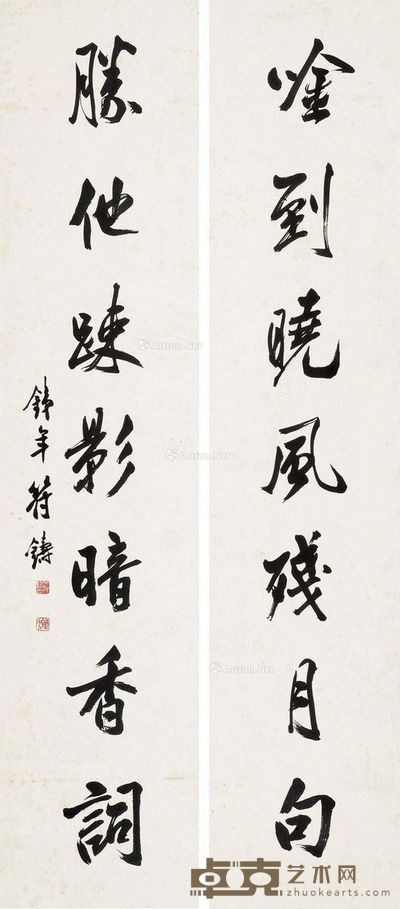 唫到曉風殘月句
勝他踈影暗香詞
鐵年符鑄
Artron.Net
Artron.Net
Artron.Net
卓克艺术网
zhuokearts.com